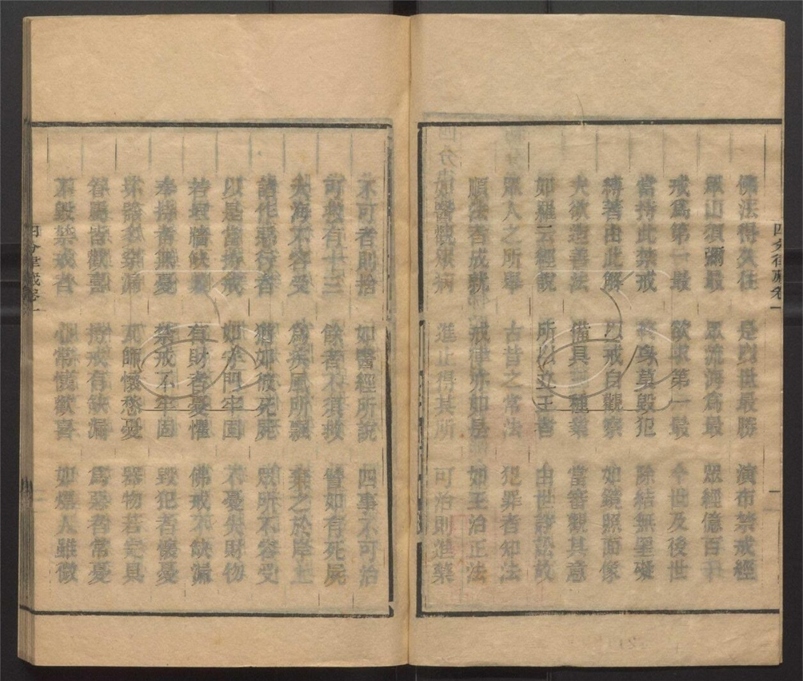 佛法得久住 是爲世最勝 演布禁戒經
眾山須彌最 眾流海爲最 眾經億百千
戒爲第一最 欲求第一最 今世及後世
當持此禁戒 終身莫毀犯 除結無罣礙
縛著由此解 以戒自觀察 如鏡照面像
夫欲造善法 備具三種業 當審觀其意
如羅云經說 所以立王者 由世諍訟故
眾人之所舉 古昔之常法 犯罪者知法
順法者成就 戒律亦如是 如王治正法
如醫視眾病 進止得其所 可治則進藥
不可者則捨 如醫經所說 四事不可治
可救有十三 餘者不須救 譬如有死屍
大海不容受 爲疾風所飄 棄之於岸上
諸作惡行者 猶如彼死屍 眾所不容受
以是當持戒 如空門牢固 不憂失財物
若垣牆缺壞 有財者憂懼 佛戒不缺漏
奉持者無憂 禁戒不牢固 毀犯者懷憂
坏器有穿漏 瓦師懷愁憂 器物若完具
得願皆歡喜 持戒有缺漏 爲惡者常憂
不毀禁戒者 心常懷歡喜 如燋人雖微
四分律藏卷一
四分律藏卷一